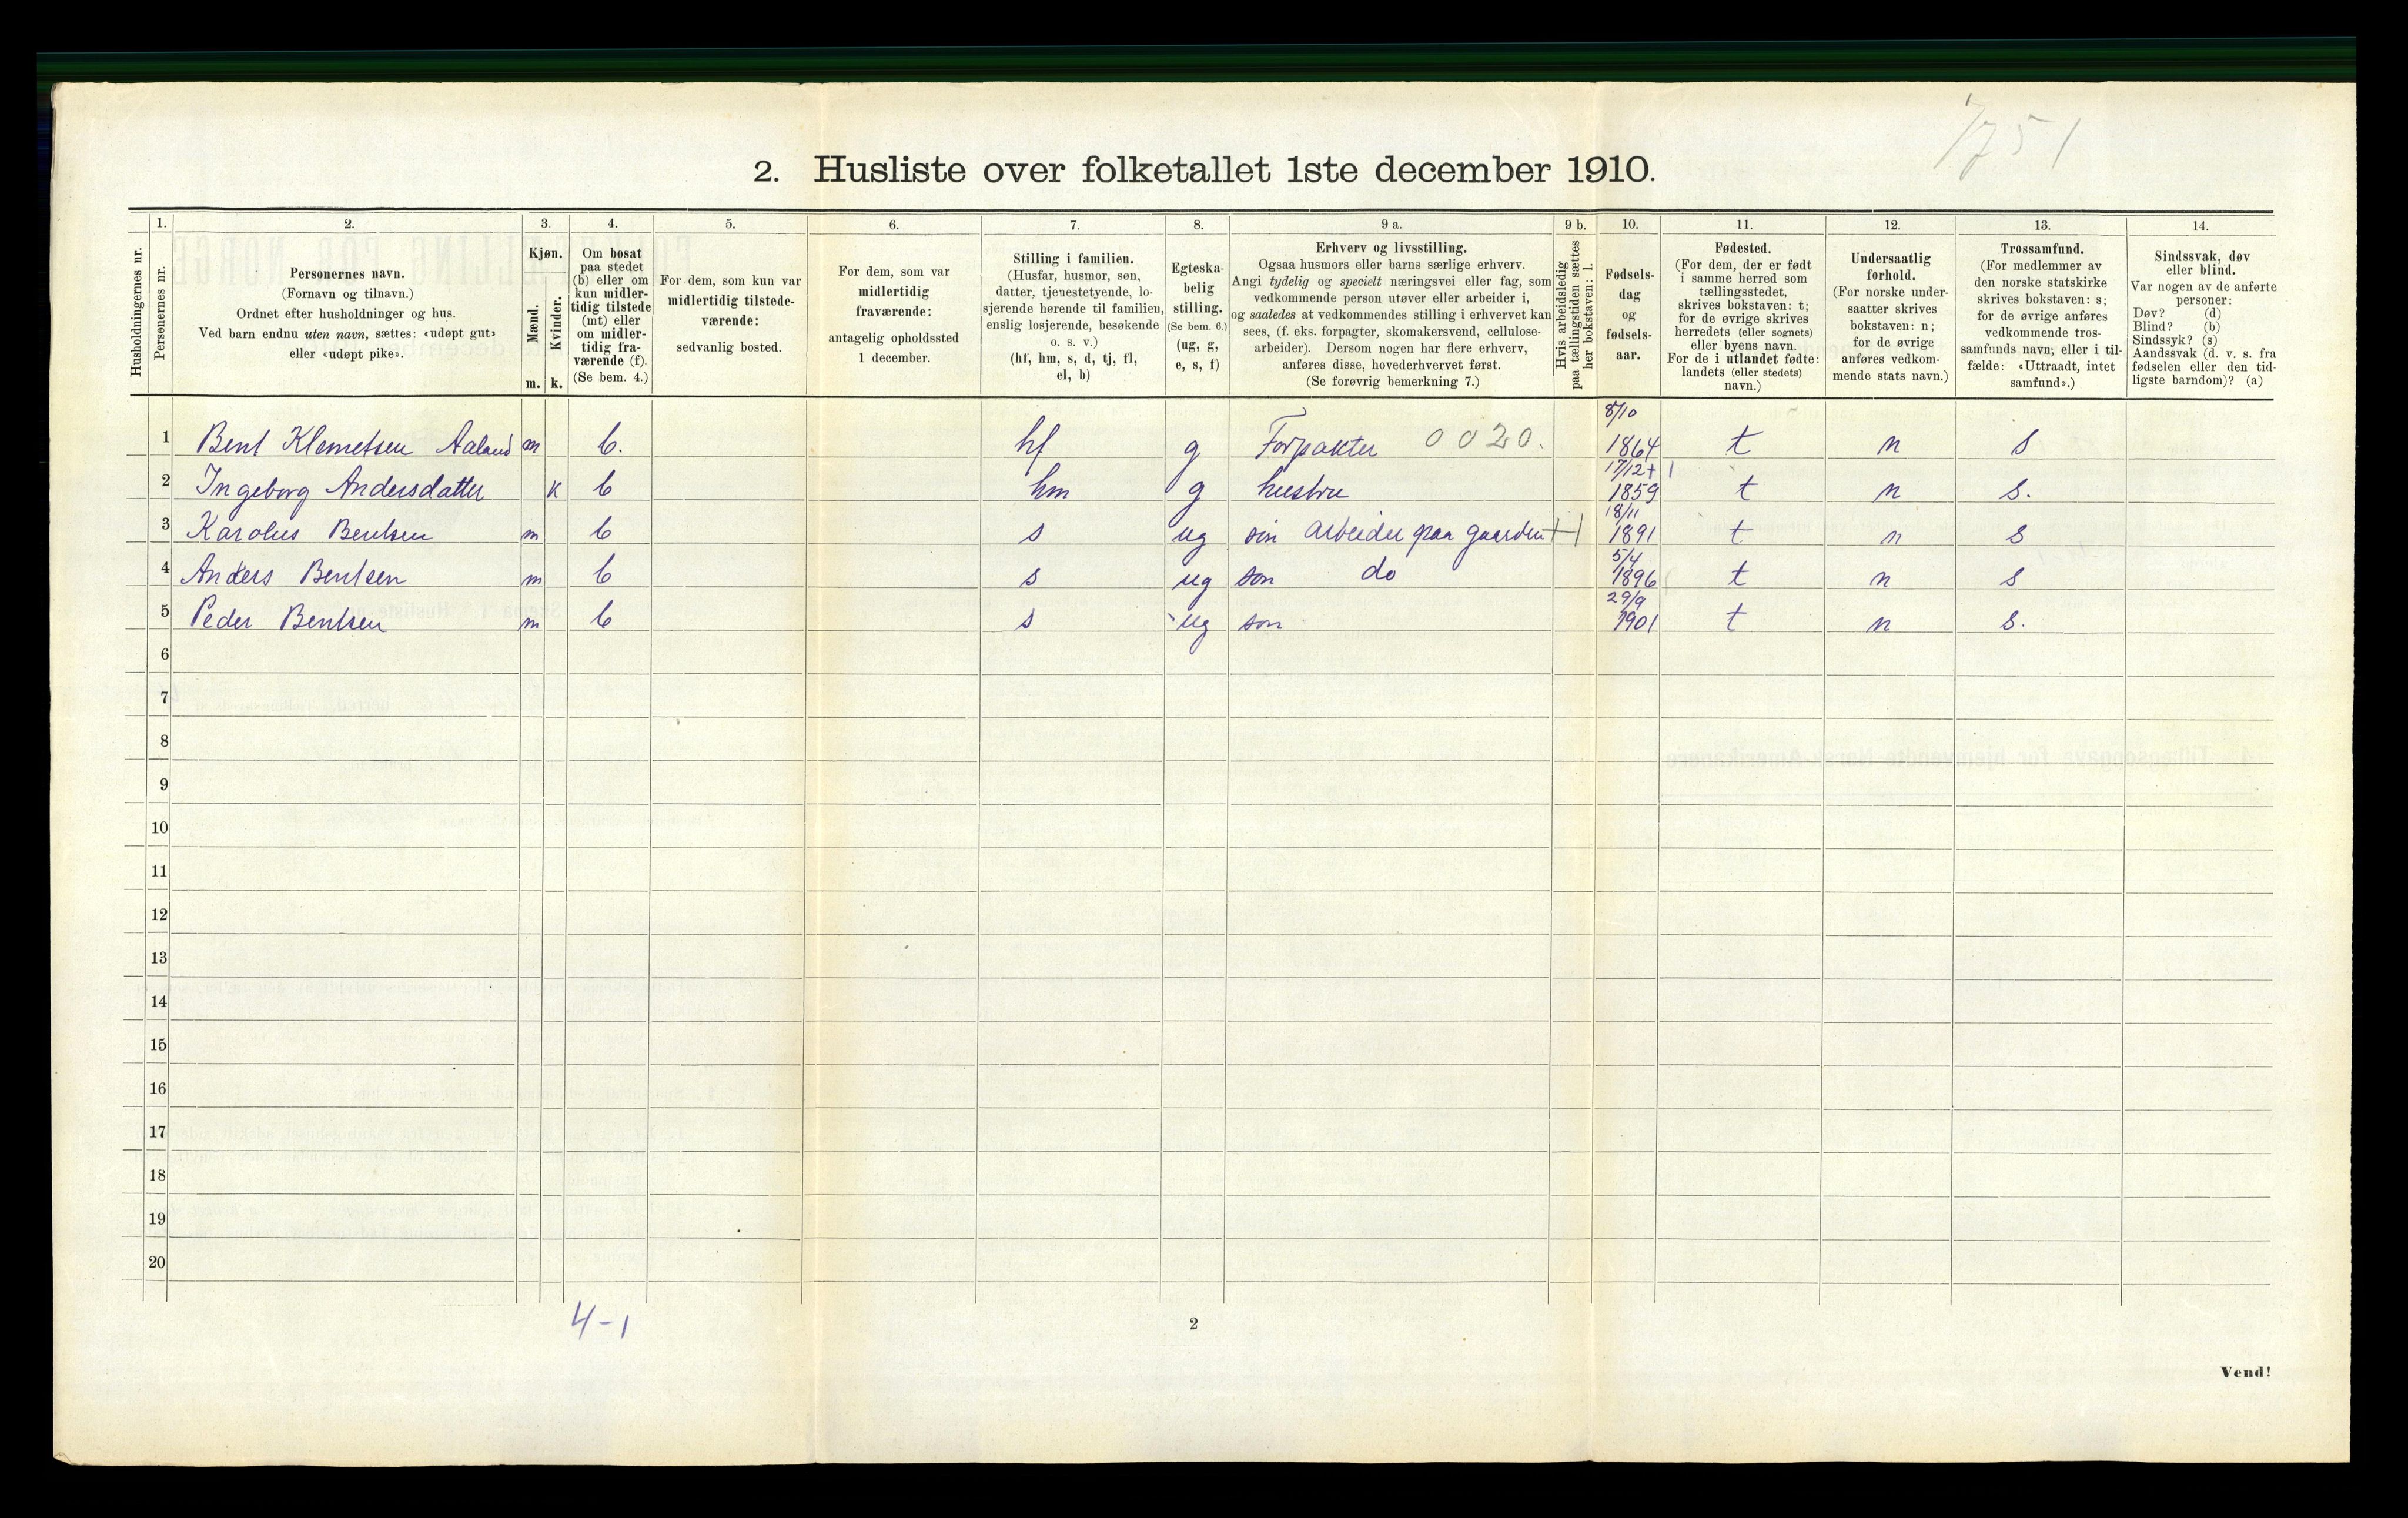 1751
2. Husliste over folketallet 1ste december 1910.
1. 2. 3. 4. 5. 6. 7. 8. 9 a. 9 b. 10. 11. 12. 13. 14.
Husholdningernes nr.
Personernes nr.
Personernes navn.
(Fornavn og tilnavn.)
Ordnet efter husholdninger og hus.
Ved barn endnu uten navn, sættes: «udøpt gut»
eller «udøpt pike».
Kjøn.
Mænd.
Kvinder.
m. k.
Om bosat
paa stedet
(b) eller om
kun midler-
tidig tilstede
(mt) eller
om midler-
tidig fra-
værende (f).
(Se bem. 4.)
For dem, som kun var
midlertidig tilstede-
værende:
sedvanlig bosted.
For dem, som var
midlertidig
fraværende:
antagelig opholdssted
1 december.
Stilling i familien.
(Husfar, husmor, søn,
datter, tjenestetyende, lo-
sjerende hørende til familien,
enslig losjerende, besøkende
o. s. v.)
(hf, hm, s, d, tj, fl,
el, b)
Egteska-
belig
stilling.
(Se bem. 6.)
(ug, g,
e, s, f)
Erhverv og livsstilling.
Ogsaa husmors eller barns særlige erhverv.
Angi tydelig og specielt næringsvei eller fag, som
vedkommende person utøver eller arbeider i,
og saaledes at vedkommendes stilling i erhvervet kan
sees, (f. eks. forpagter, skomakersvend, cellulose-
arbeider). Dersom nogen har flere erhverv,
anføres disse, hovederhvervet først.
(Se forøvrig bemerkning 7.)
Hvis arbeidsledig
paa tællingstiden sættes
her bokstaven: l.
Fødsels-
dag
og
fødsels-
aar.
Fødested.
(For dem, der er født
i samme herred som
tællingsstedet,
skrives bokstaven: t;
for de øvrige skrives
herredets (eller sognets)
eller byens navn.
For de i utlandet fødte:
landets (eller stedets)
navn.)
Undersaatlig
forhold.
(For norske under-
saatter skrives
bokstaven: n;
for de øvrige
anføres vedkom-
mende stats navn.)
Trossamfund.
(For medlemmer av
den norske statskirke
skrives bokstaven: s;
for de øvrige anføres
vedkommende tros-
samfunds navn, eller i til-
fælde: «Uttraadt, intet
samfund».)
Sindssvak, døv
eller blind.
Var nogen av de anførte
personer:
Døv? (d)
Blind? (b)
Sindssyk? (s)
Aandssvak (d. v. s. fra
fødselen eller den tid-
ligste barndom)? (a)
8/10
1 Bent Klemetsen Aaland m b. hf g Forpakter 0020. 1864 t n s
17/12 + 1
2 Ingeborg Andersdatter k b hm g hustru 1859 t n s.
18/11
3 Karolus Bentsen m b s ug søn arbeider paa gaarden + | 1891 t n s
5/4
4 Anders Bentsen m b s ug søn do 1896 t n s
29/9
5 Peder Bentsen m b s ug søn 1901 t n s.
6
7
8
9
10
11
12
13
14
15
16
17
18
19
20
4-1
2
Vend!